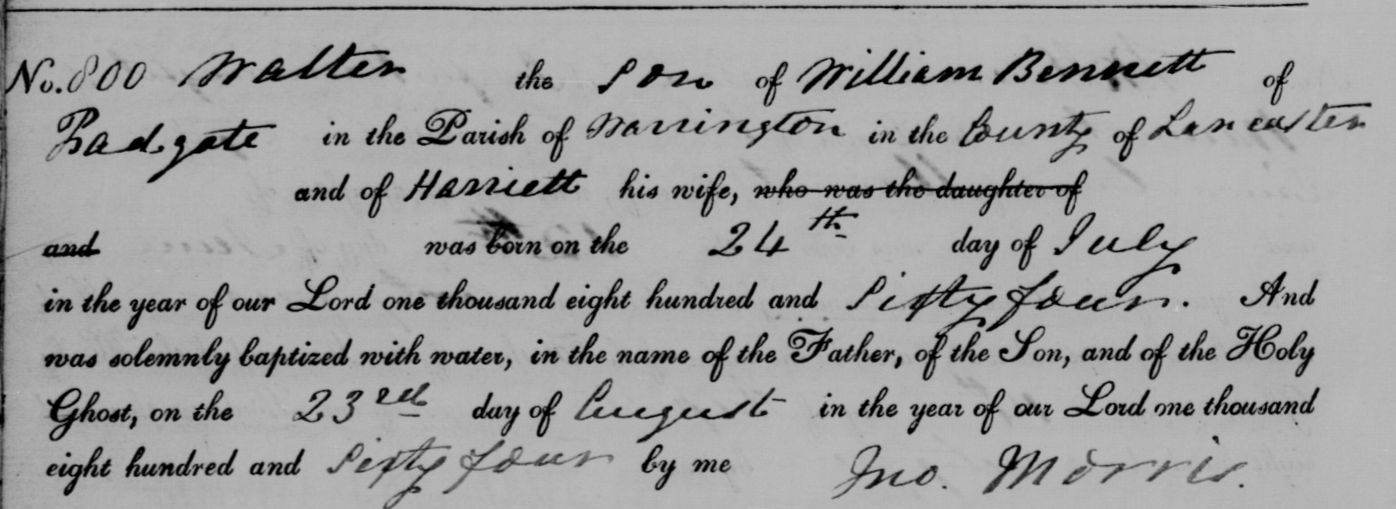 No. 800 Walter the Son of William Bennett of
Padgate in the Parish of Warrington in the County of Lancaster
and of Harriett his wife, who was the daughter of
and was born on the 24th day of July
in the year of our Lord one thousand eight hundred and Sixty four. And
was solemnly baptized with water, in the name of the Father, of the Son, and of the Holy
Ghost, on the 23rd day of August in the year of our Lord one thousand
eight hundred and Sixty four by me Jno. Morris.